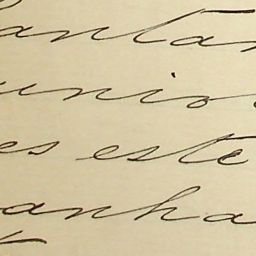 antan
unio
es este
anha